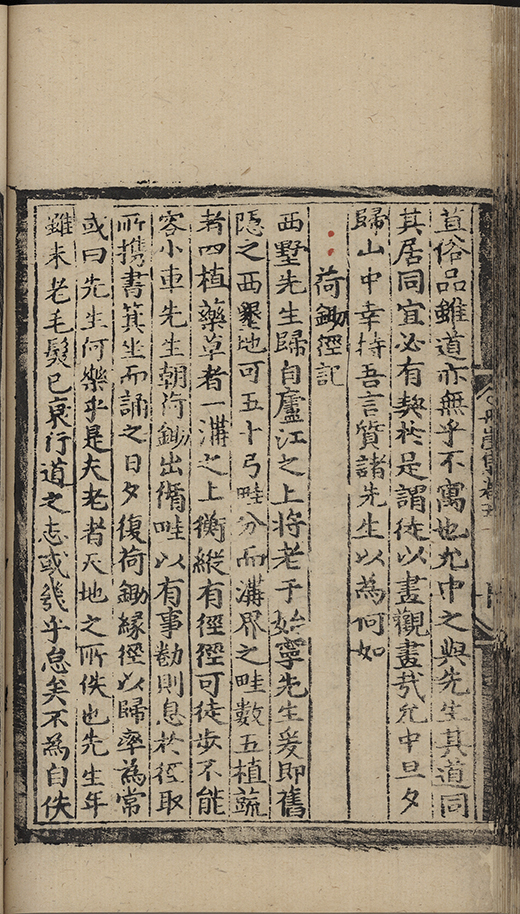 直俗品雖道亦無乎不寓也允中之與先生其道同
其居同宜必有契於是謂徒以畫觀畫哉允中旦夕
歸山中幸持吾言質諸先生以為何如
荷鋤徑記
西墅先生歸自廬江之上將老于始寧先生爰即舊
隱之西墾地可五十弓畦分而溝界之畦数五植蔬
者四植藥草者一溝之上衡縱有徑徑可徒步不能
容小車先生朝荷鋤出循畦以有事勌則息於徑取
所携書箕坐而誦之日夕復荷鋤緣徑以歸率為常
或曰先生何樂乎是夫老者天地之所佚也先生年
雖未老毛髮已衰行道之志或幾乎怠矣不為自佚